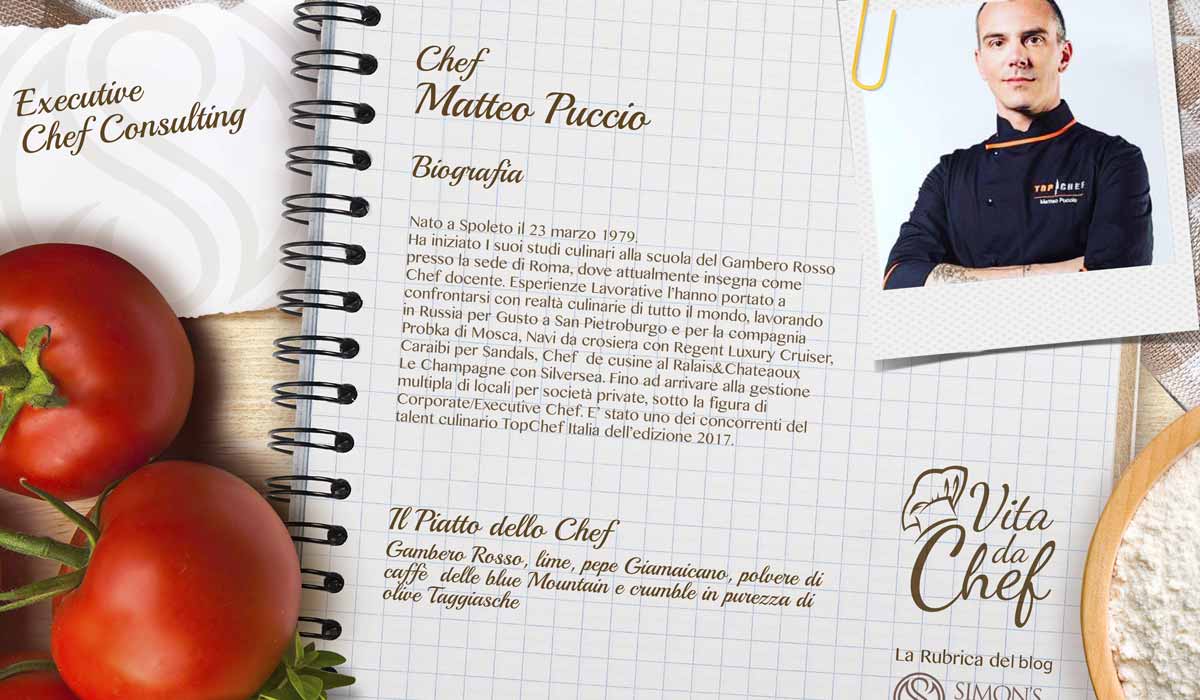 Executive
Chef Consulting
Chef
Matteo Puccio
Biografia
Nato a Spoleto il 23 marzo 1979.
Ha iniziato I suoi studi culinari alla scuola del Gambero Rosso
presso la sede di Roma, dove attualmente insegna come
Chef docente. Esperienze Lavorative l'hanno portato a
confrontarsi con realtà culinarie di tutto il mondo, lavorando
in Russia per Gusto a San Pietroburgo e per la compagnia
Probka di Mosca, Navi da crosiera con Regent Luxury Cruiser,
Caraibi per Sandals, Chef de cusine al Ralais&Chateaoux
Le Champagne con Silversea. Fino ad arrivare alla gestione
multipla di locali per società private, sotto la figura di
Corporate/Executive Chef. E' stato uno dei concorrenti del
talent culinario TopChef Italia dell'edizione 2017.
TOP CHEF
Matteo Puccio
Il Piatto dello Chef
Gambero Rosso, lime, pepe Giamaicano, polvere di
caffè delle blue Mountain e crumble in purezza di
olive Taggiasche
Vita
da
Chef
La Rubrica del blog
SIMON'S